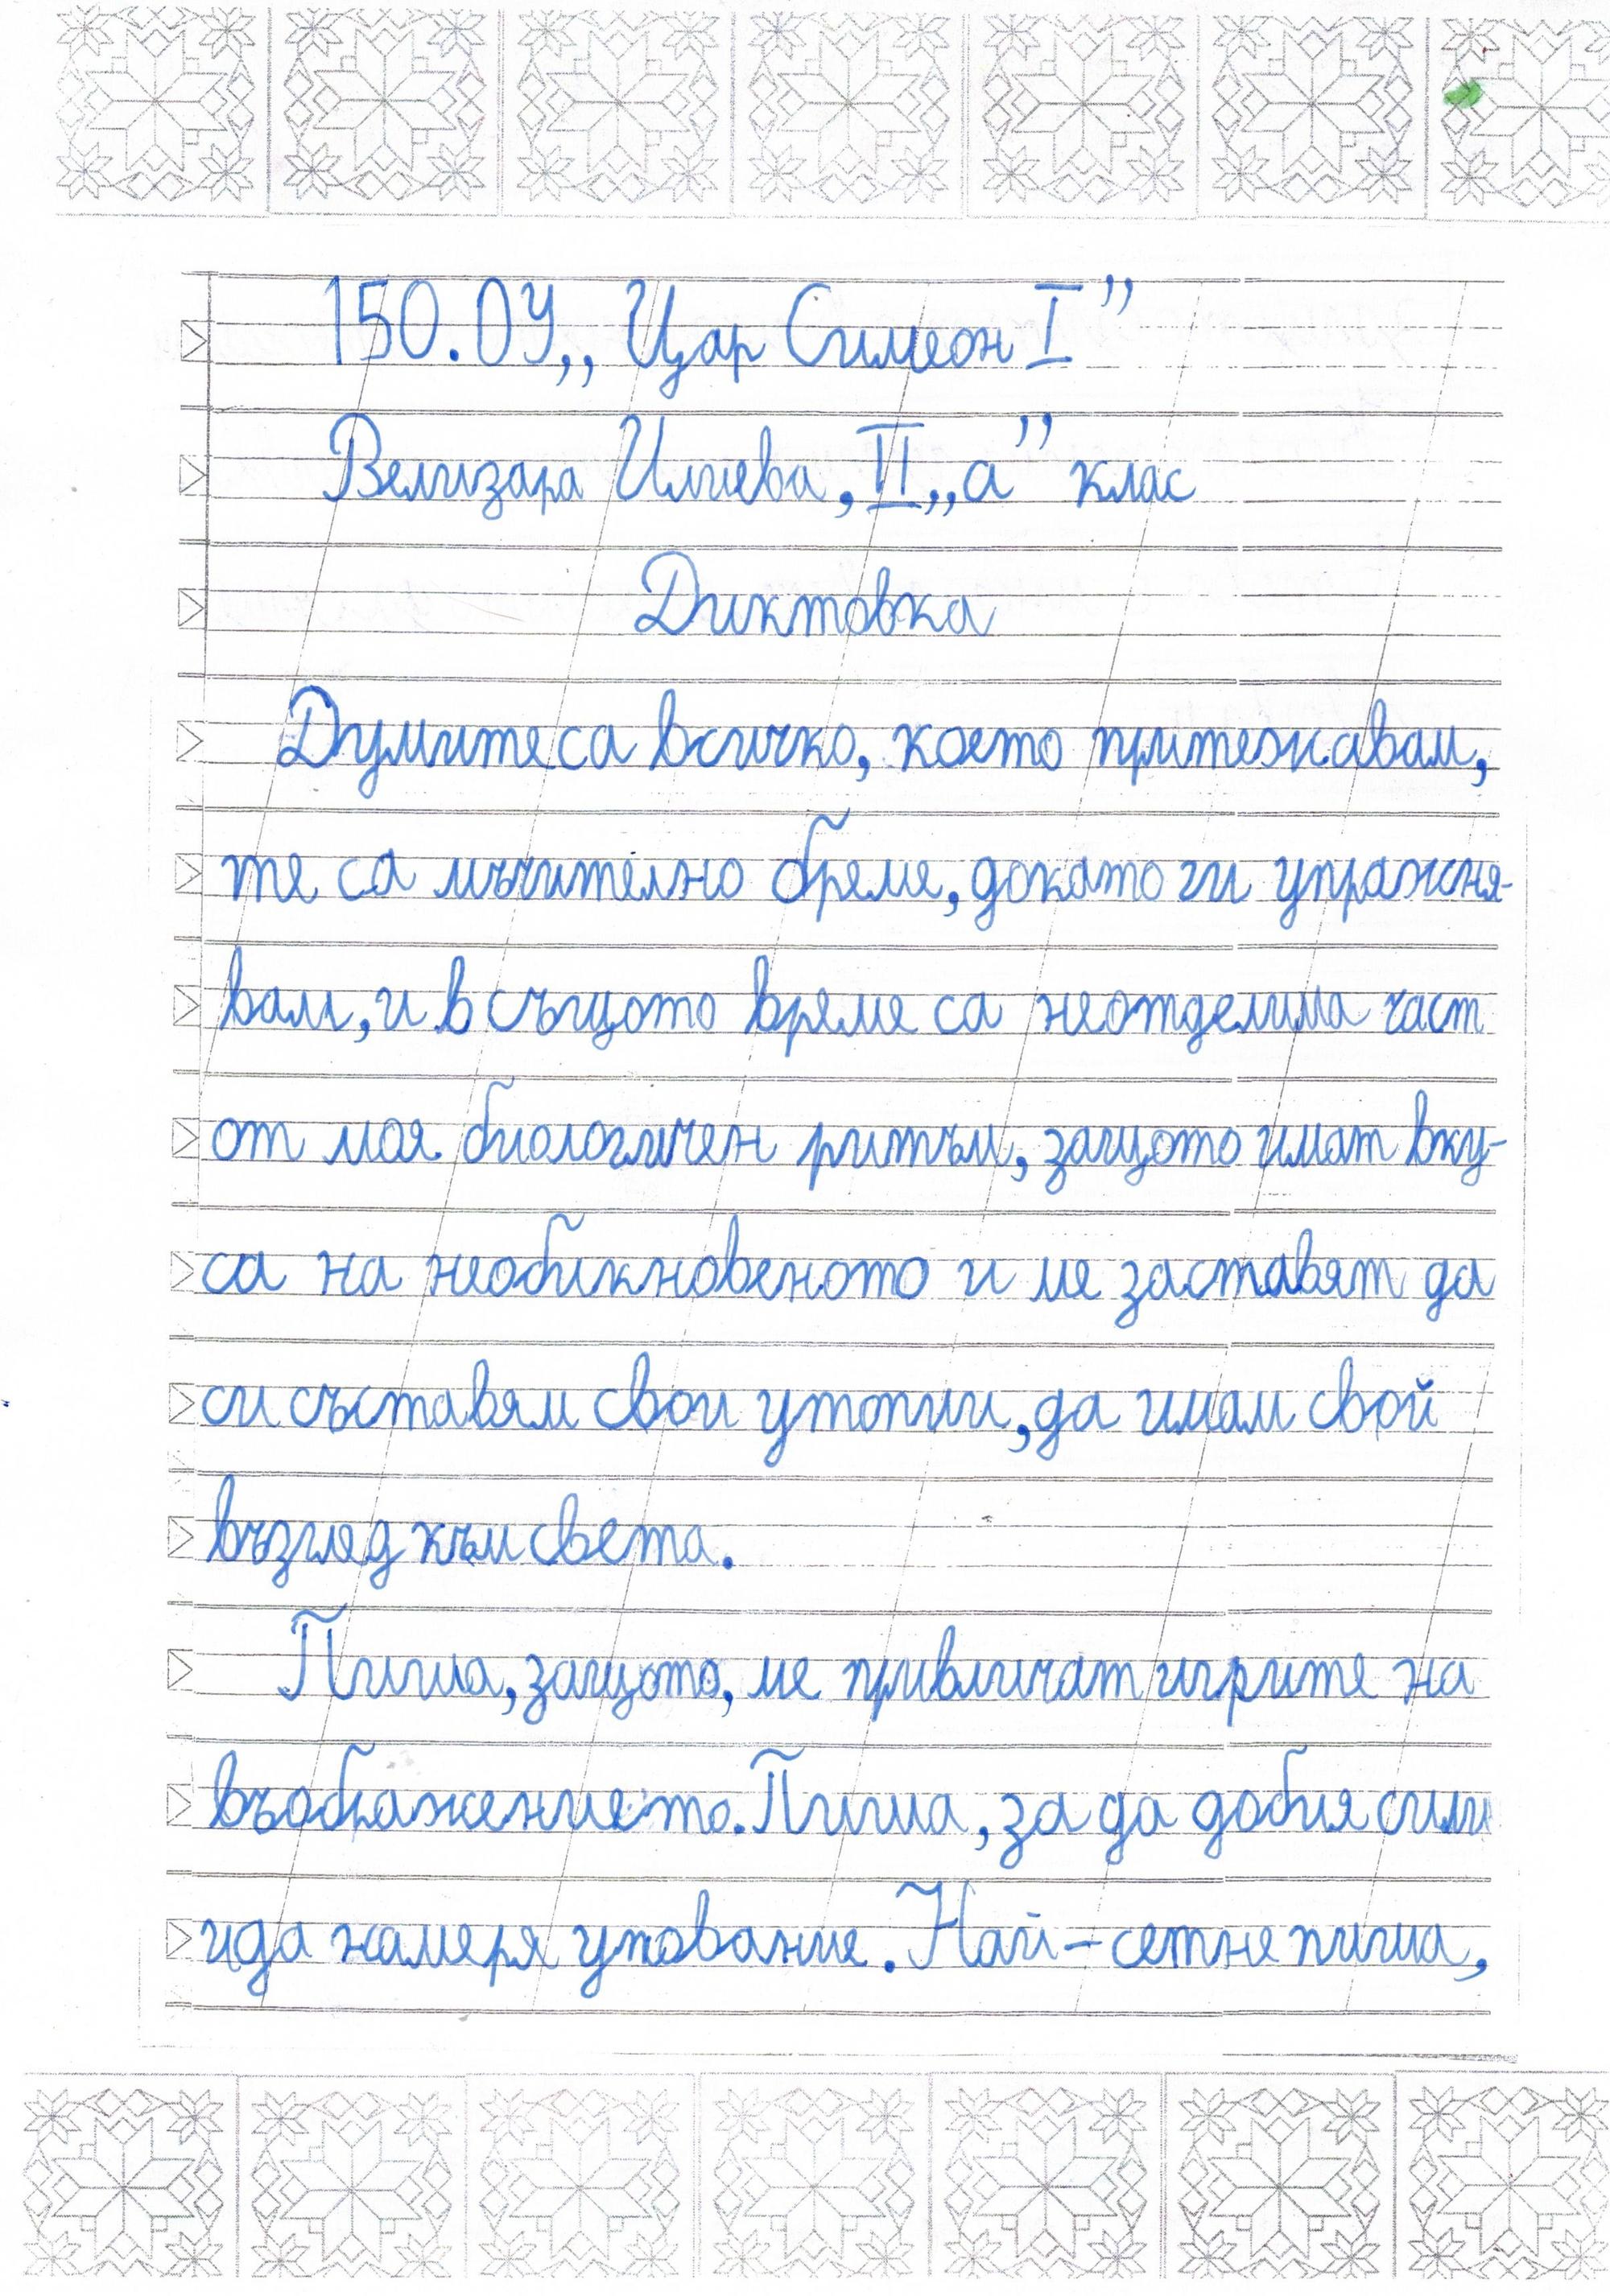 150.ОУ„Цар Симеон I”
Велизара Илиева, II „а” клас
Диктовка
Думите са всичко, което притежавам,
те са мъчително бреме, докато ги упражня-
вам, и в същото време са неотделима част
от моя биологичен ритъм, защото имат вку-
са на необикновеното и ме заставят да
си съставям свои утопии, да имам свой
възглед към света.
Пиша, защото, ме привличат игрите на
въображението. Пиша, за да добия сили
и да намеря упование. Най-сетне пиша,